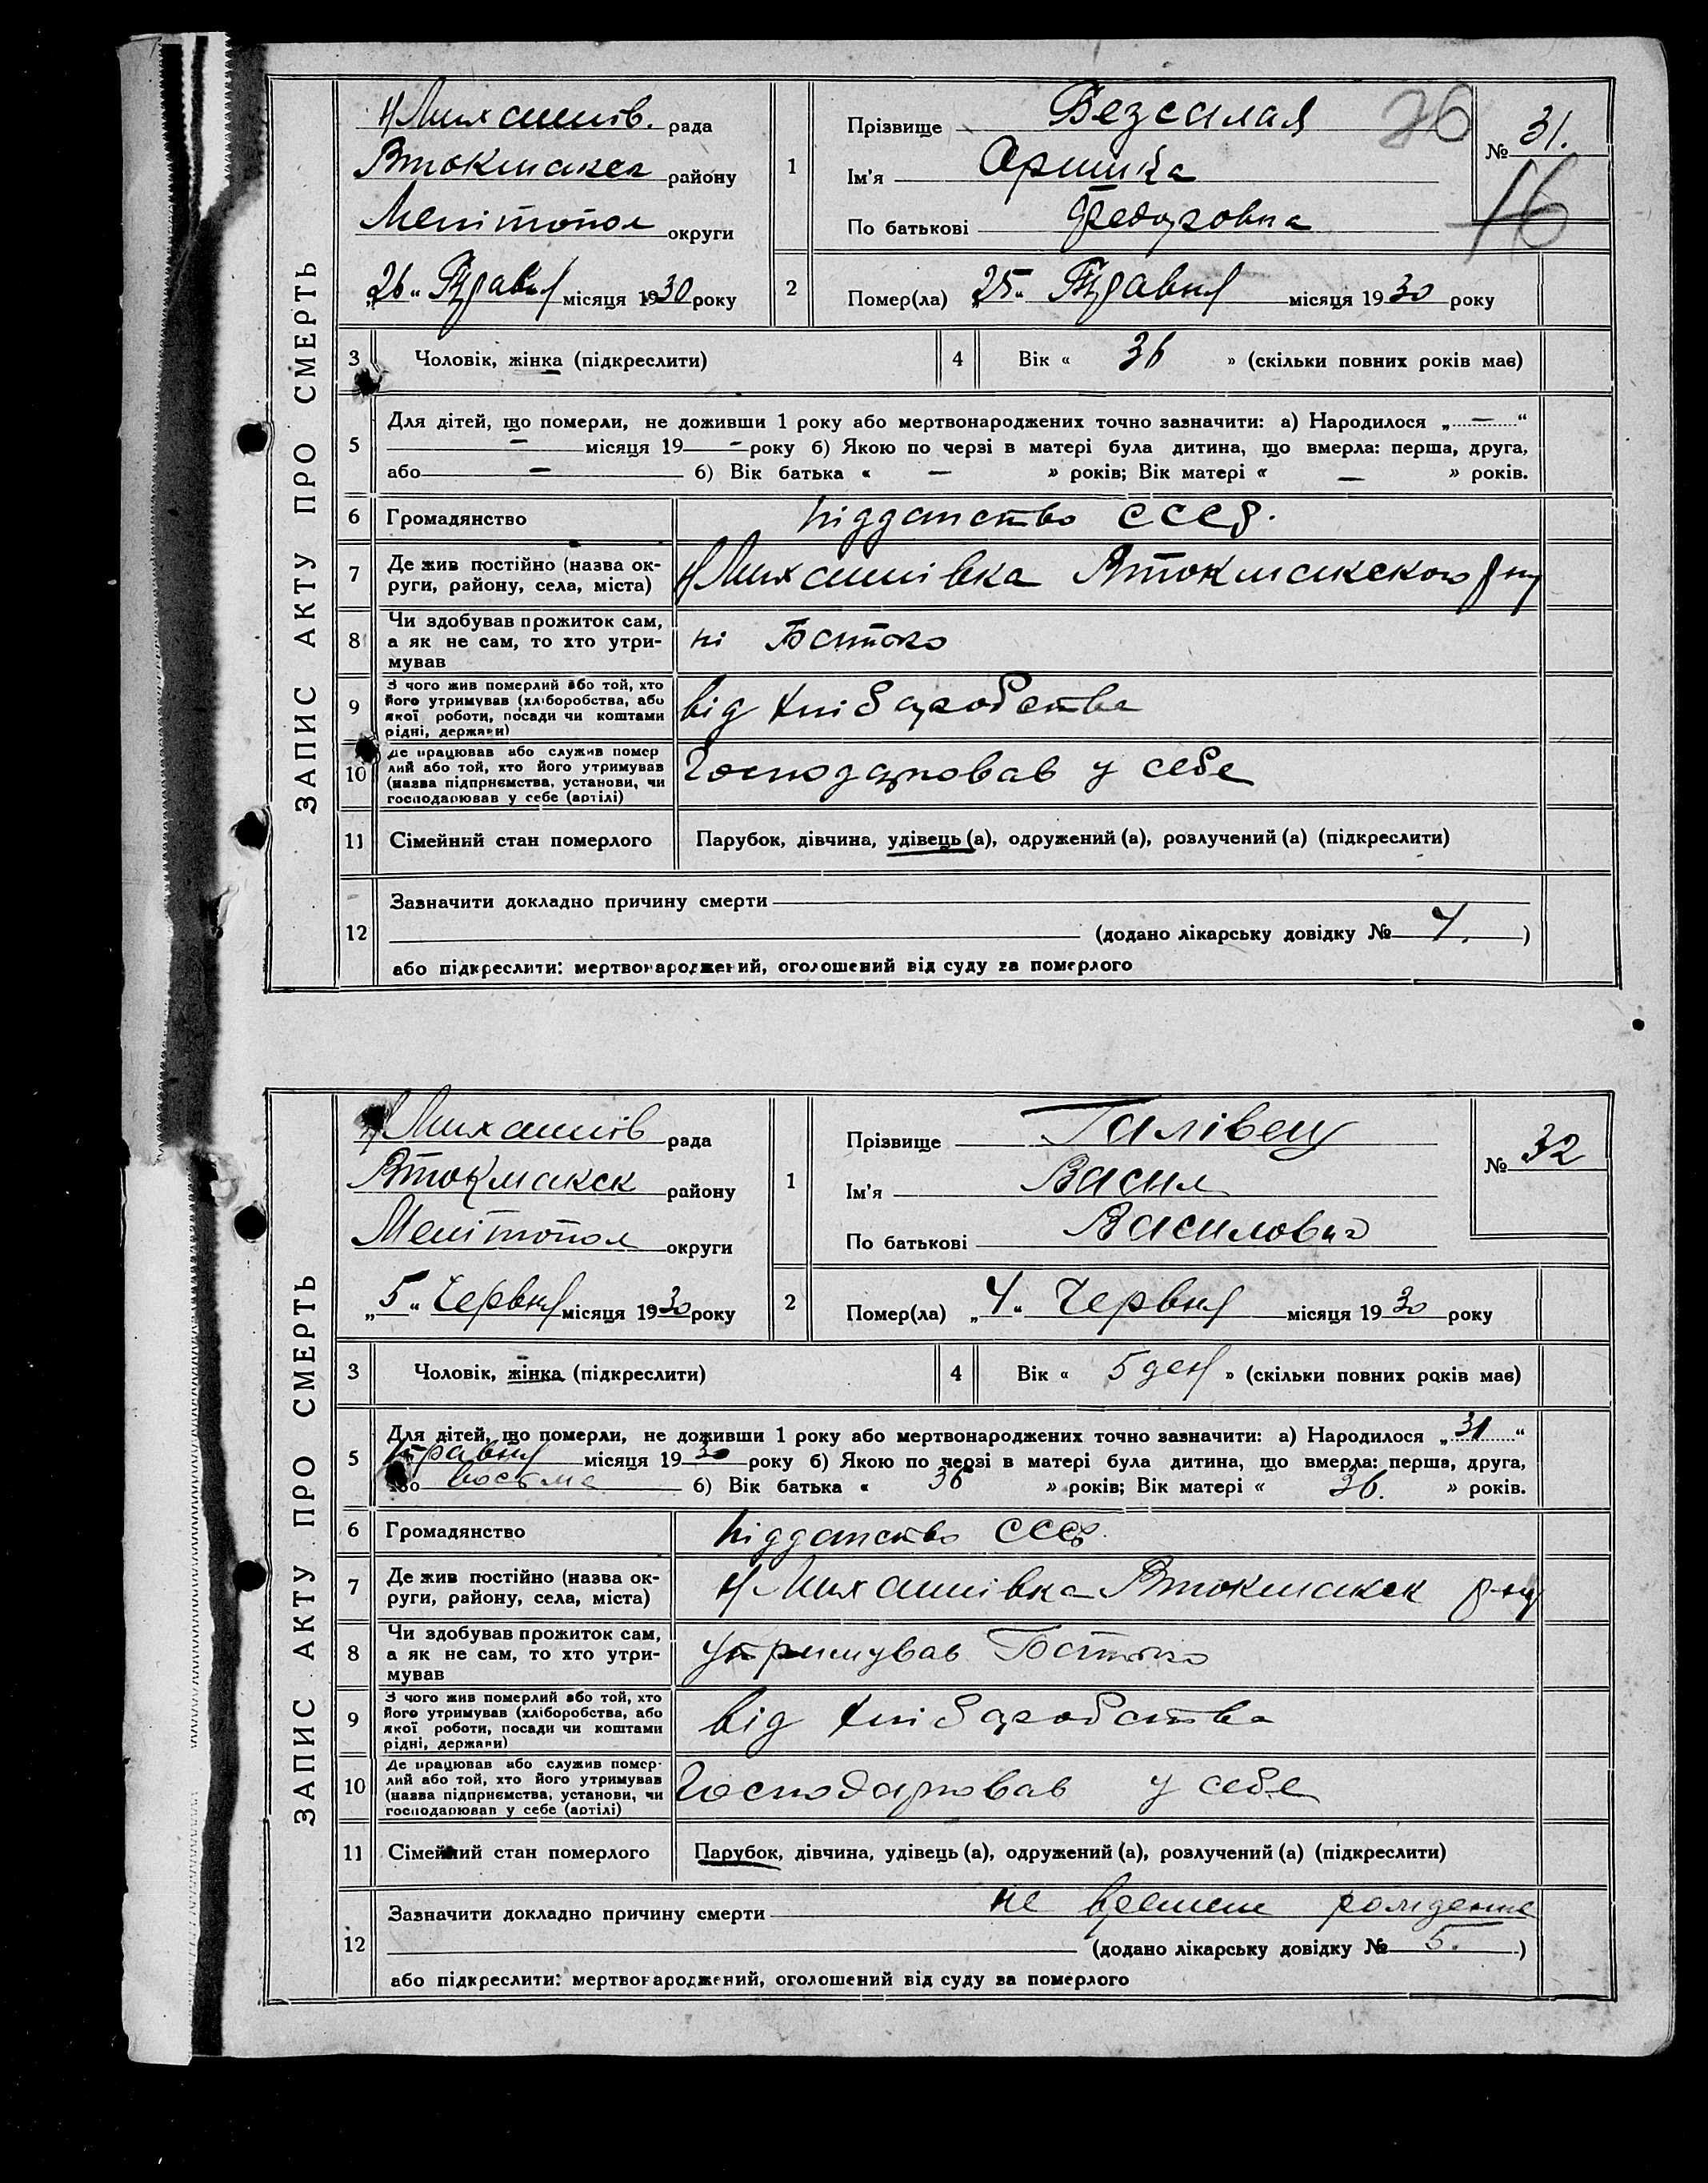 ЗАПИС АКТУ ПРО СМЕРТЬ
Н Михайлів. рада
Втокмакск району
Меліtопол округи
„26“ Травня місяця 1930 року
1
Прізвище Безсалая
Ім'я Оришка
По батькові Федоровна
26
№ 31.
16
2
Помер(ла) „25“ Травня місяця 1930 року
3 Чоловік, жінка (підкреслити)
4 Вік « 36 » (скільки повних років має)
5
Для дітей, що померли, не доживши 1 року або мертвонароджених точно зазначити: а) Народилося „ — “
— місяця 19 — року б) Якою по черзі в матері була дитина, що вмерла: перша, друга,
або — б) Вік батька « — » років; Вік матері « — » років.
6 Громадянство підданство СССР.
7 Де жив постійно (назва ок-
руги, району, села, міста)
Н Михайлівка Втокмакского р-ну
8 Чи здобував прожиток сам,
а як не сам, то хто утри-
мував
ні Батько
9 З чого жив померлий або той, хто
його утримував (хліборобства, або
якої роботи, посади чи коштами
рідні, держави)
від хліборобства
10 Де працював або служив помер
лий або той, хто його утримував
(назва підприємства, установи, чи
господарював у себе (артілі)
Господаровав у себе
11 Сімейний стан померлого Парубок, дівчина, удівець (а), одружений (а), розлучений (а) (підкреслити)
12
Зазначити докладно причину смерти
(додано лікарську довідку № 4. )
або підкреслити: мертвонароджений, оголошений від суду за померлого
ЗАПИС АКТУ ПРО СМЕРТЬ
Н Михайлів рада
Втокмакск району
Мелітопол округи
„5“ Червня місяця 1930 року
1
Прізвище Галівец
Ім'я Васил
По батькові Василович
№ 32
2
Помер(ла) „4“ Червня місяця 1930 року
3 Чоловік, жінка (підкреслити)
4 Вік « 5 ден » (скільки повних років має)
5
Для дітей, що померли, не доживши 1 року або мертвонароджених точно зазначити: а) Народилося „31“
травня місяця 1930 року б) Якою по черзі в матері була дитина, що вмерла: перша, друга,
або восьма б) Вік батька « 36 » років; Вік матері « 36. » років.
6 Громадянство підданство СССР.
7 Де жив постійно (назва ок-
руги, району, села, міста)
Н Михайлівка Втокмакск р-ну
8 Чи здобував прожиток сам,
а як не сам, то хто утри-
мував
утримував Батько
9 З чого жив померлий або той, хто
його утримував (хліборобства, або
якої роботи, посади чи коштами
рідні, держави)
від хліборобства
10 Де працював або служив помер-
лий або той, хто його утримував
(назва підприємства, установи, чи
господарював у себе (артілі)
Господаровав у себе
11 Сімейний стан померлого Парубок, дівчина, удівець (а), одружений (а), розлучений (а) (підкреслити)
12
Зазначити докладно причину смерти не времене рождение
(додано лікарську довідку № 5. )
або підкреслити: мертвонароджений, оголошений від суду за померлого